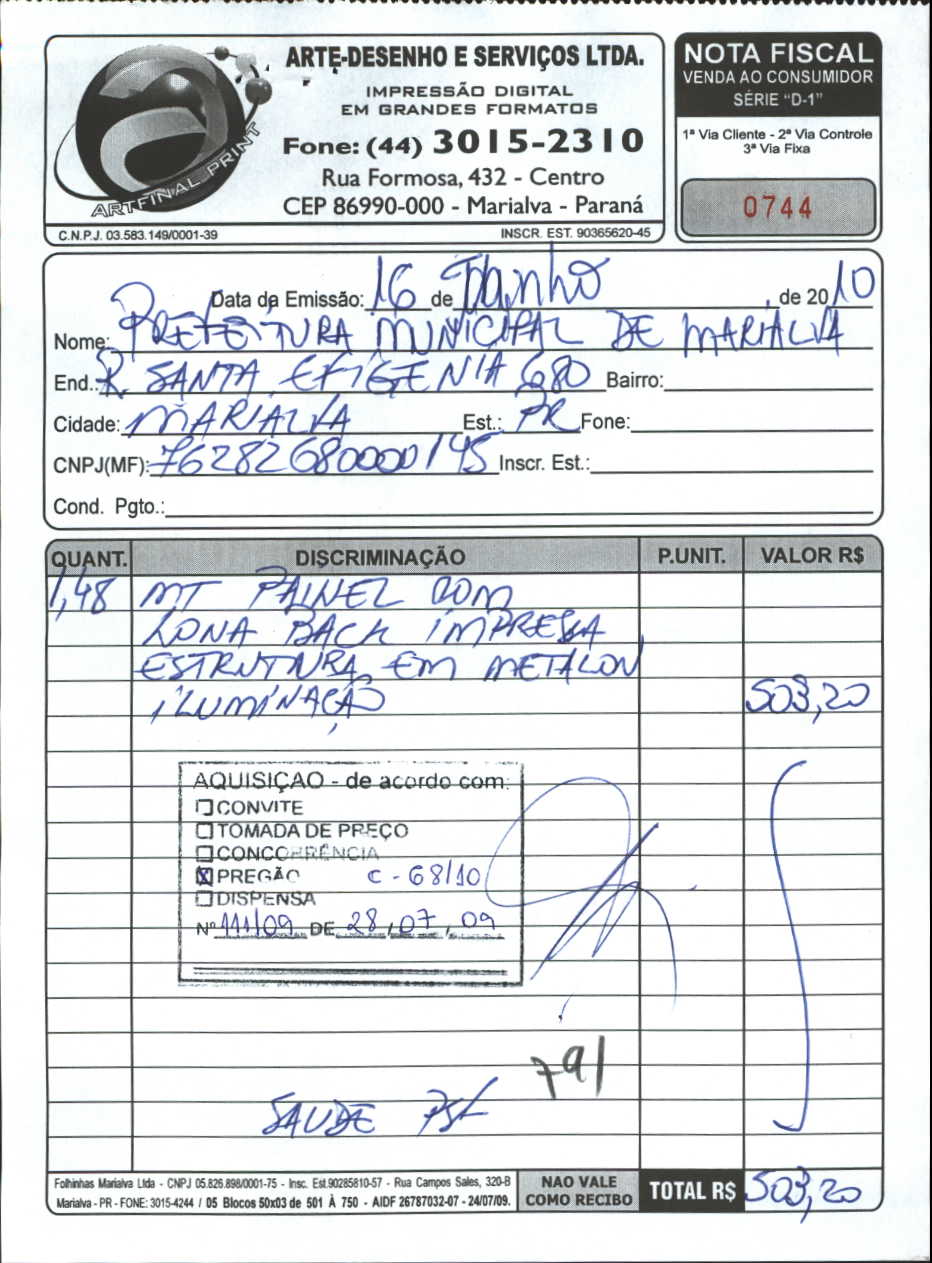 ARTE-DESENHO E SERVIÇOS LTDA.
IMPRESSÃO DIGITAL
EM GRANDES FORMATOS
Fone: (44) 3015-2310
Rua Formosa, 432 - Centro
CEP 86990-000 - Marialva - Paraná
ARTFINAL PRINT
C.N.P.J. 03.583.149/0001-39
INSCR. EST. 90365620-45
NOTA FISCAL
VENDA AO CONSUMIDOR
SÉRIE "D-1"
1ª Via Cliente - 2ª Via Controle
3ª Via Fixa
0744
Data da Emissão: 16 de , de 2010
Nome: PREFEITURA MUNICIPAL DE MARIALVA
End.: R. SANTA EFIGENIA 680 Bairro:
Cidade: MARIALVA Est.: PR Fone:
CNPJ(MF): 76282680000/45 Inscr. Est.:
Cond. Pgto.:
QUANT. DISCRIMINAÇÃO P.UNIT. VALOR R$
1,48 MT PAINEL COM
LONA BACK IMPRESSA
ESTRUTURA EM METALON
ILUMINAÇÃO 503,20
AQUISIÇAO - de acordo com:
CONVITE
TOMADA DE PREÇO
CONCORRÊNCIA
X PREGÃO C - 68/10
DISPENSA
Nº 111/09 DE 28/07/09
791
SAUDE
Folhinhas Marialva Ltda - CNPJ 05.826.898/0001-75 - Insc. Est.90285810-57 - Rua Campos Sales, 320-B
Marialva - PR - FONE: 3015-4244 / 05 Blocos 50x03 de 501 À 750 - AIDF 26787032-07 - 24/07/09.
NAO VALE
COMO RECIBO
TOTAL R$ 503,20